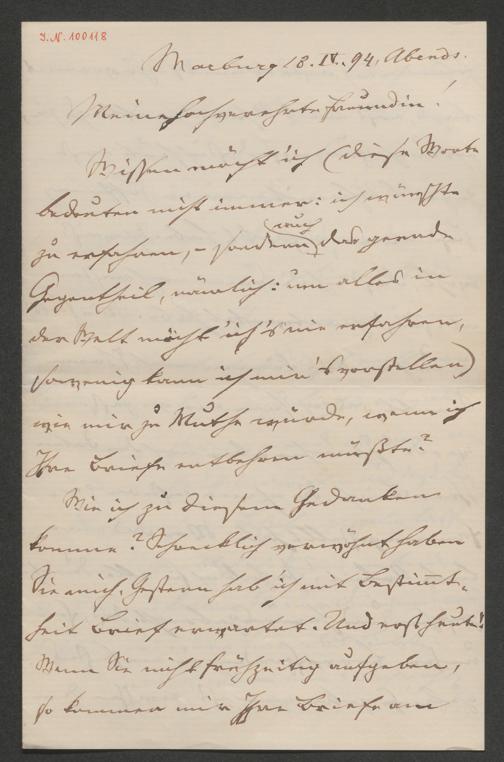 J.N. 100118
Marburg 18. IV. 94, Abends.
Meine hochverehrte Freundin!
Wissen möcht' ich (diese Worte
bedeuten nicht immer: ich wünschte
zu erfahren, – sondern auch das gerade
Gegentheil, nämlich: um alles in
der Welt möcht' ich's nie erfahren,
sowenig kann ich mir's vorstellen)
wie mir zu Muthe würde, wenn ich
Ihre Briefe entbehren müßte?
Wie ich zu diesem Gedanken
komme? Schrecklich verwöhnt haben
Sie mich. Gestern hab' ich mit Bestimmt-
heit Brief erwartet. Und erst heute!
Wenn Sie nicht frühzeitig aufgeben,
so kommen mir Ihre Briefe am